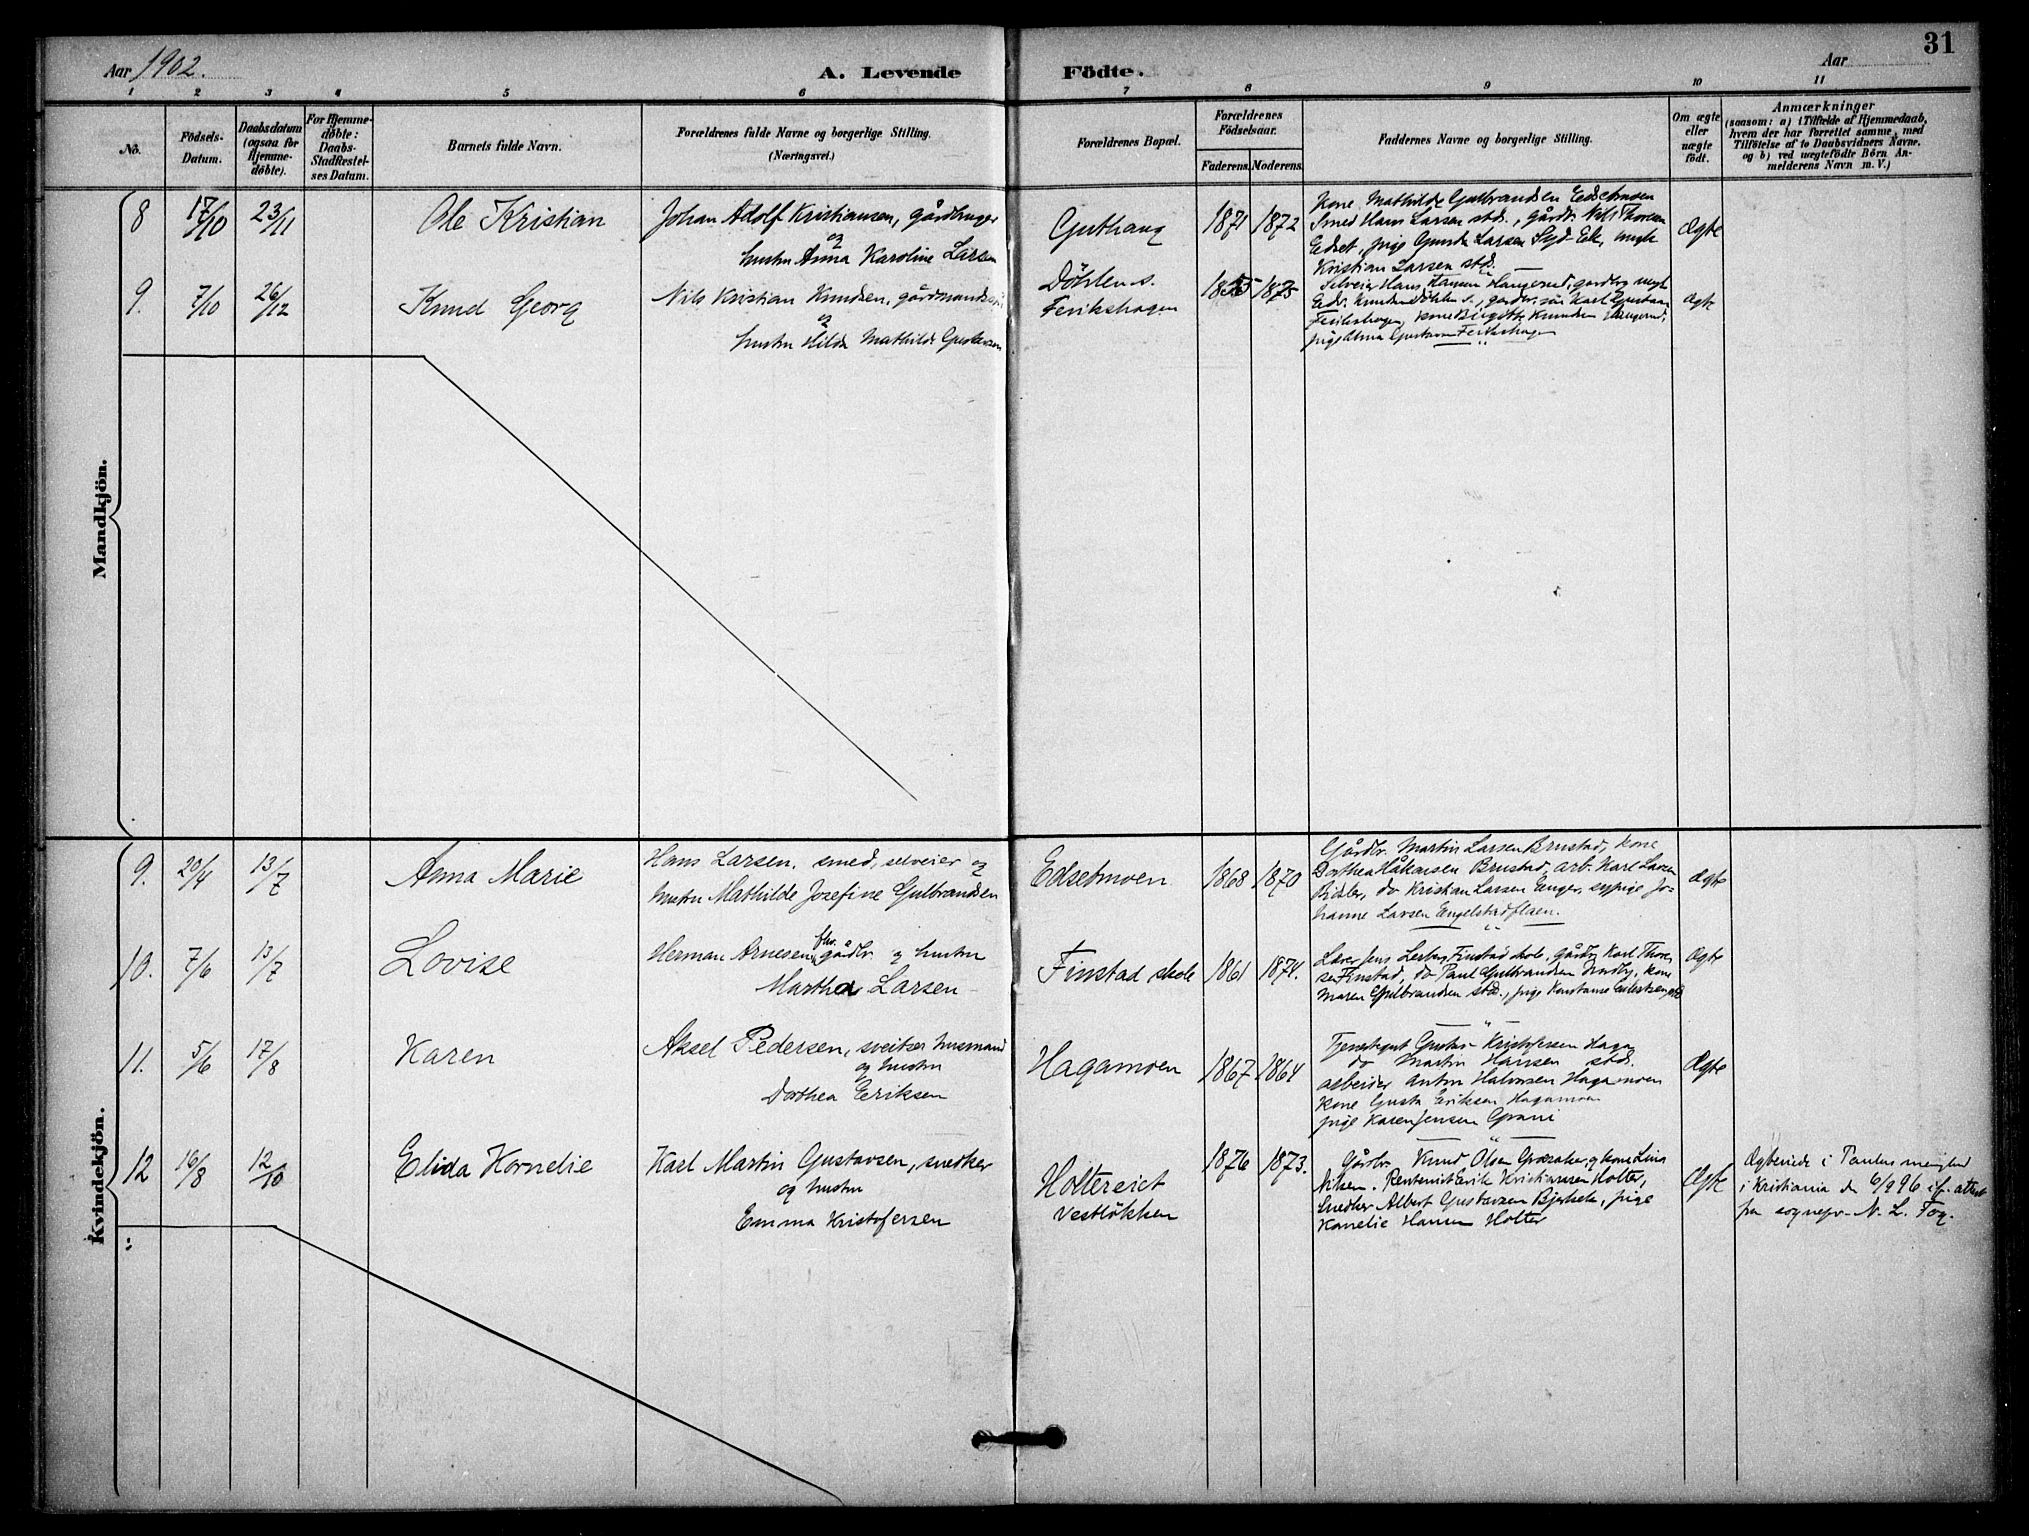 31
Aar 1902.
A. Levende Födte.
Aar
1 2 3 4 5 6 7 8 9 10 11
No.
Födsels-Datum.
Daabsdatum (ogsaa for Hjemme-døbte).
For Hjemme-døbte: Daabs-Stadfæstel-ses Datum.
Barnets fulde Navn.
Forældrenes fulde Navne og borgerlige Stilling.
(Næringsvei.)
Forældrenes Bopæl.
Forældrenes Födselsaar.
Faderens. Moderens.
Faddernes Navne og borgerlige Stilling.
Om ægte eller uægte födt.
Anmærkninger
(saasom: a) i Tilfælde af Hjemmedaab,
hvem der har forrettet samme, med
Tilföielse af to Daabsvidners Navne,
og b) ved uægtefödte Börn An-
melderens Navn m. V.)
Mandkjön.
8 17/10 23/11 Ole Kristian
Johan Adolf Kristiansen, gårdbruger
og
hustru Anna Karoline Larsen
Guthaug
1871 1872
Kone Mathilde Gulbrandsen Edsetmoen
Smed Hans Larsen std., gårdbr. Nils Thoresen
Edset, pige Gunda Larsen Syd-Eek, ungk.
Kristian Larsen std.
Ægte
9. 7/10 26/12 Knud Georg
Nils Kristian Knudsen, gårdmands
og
hustru Hilda Mathilde Gustavsen
Döhlen s.
Ferikshagen
1875
Selveier Hans Hansen Haugerud, gårdbr. ungk
Edv. Knudsen Döhlen s., gårdbr. sön Karl Gustavsen
Ferikshagen, kone Birgitte Knudsen Haugerud,
pige Anna Gustavsen Ferikshagen
Ægte
Kvindekjön.
9. 20/4 13/7 Anna Marie
Hans Larsen, smed, selveier og
hustru Mathilde Josefine Gulbrandsen
Edsetmoen
1868 1870
Gårdbr. Martin Larsen Brustad, kone
Dorthea Håkonsen Brustad, arb. Karl Larsen
do Kristian Larsen Enger, sypige Jo-
hanne Larsen Engelstadflaen.
Ægte
10. 7/6 13/7 Lovise
Herman Arnesen, fhv. gårdbr. og hustru
Martha Larsen
Finstad skole
1861 1874.
Lærer Jens Finstad skole, gårdbr Karl Thore-
sen Finstad, do Paul Gulbrandsen Nordby, kone
Maren Gulbrandsen std., pige Konstanse
Ægte
11. 5/6 17/8 Karen
Aksel Pedersen, sveitser husmand
og hustru
Dorthea Eriksen
Hagamoen
1867 1864
Tjenestegut Gustav Kristofersen Haga
do Martin Hansen std.
arbeider Anton Halvorsen Hagamoen
kone Gusta Eriksen Hagamoen
pige Karen Jensen Grani
Ægte
12 16/8 12/10 Elida Kornelie
Karl Martin Gustavsen, snedker
og hustru
Emma Kristofersen
Holtereiet
Vestlökken
1876 1873.
Gårdbr. Knud Olsen og kone Lina
Nilsen. Rentenist Erik Kristiansen Holter,
Snedker Albert Gustavsen Bjerke, pige
Kornelie Hansen Holter
Ægte
Ægteviede i Paulus menighed
i Kristiania den 6/9 96 if. attest
fra sognepr. N. L. Fog.